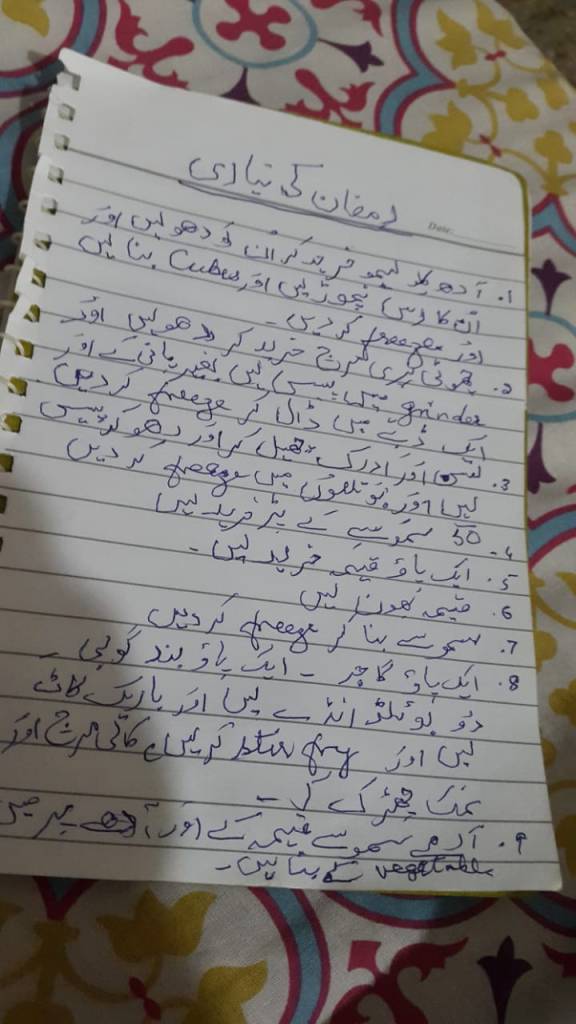 رمضان کی تیاری
Date:
1. آدھ کلو لیمو خرید کر ان کو دھو لیں اور
ان کا رس نچوڑیں اور Cubes بنا لیں
اور freeze کر دیں۔
2. چھوٹی ہری مرچ خرید کر دھو لیں اور
grinder میں پیس لیں بغیر پانی کے اور
ایک ڈبے میں ڈال کر freeze کر دیں
3. لہسن اور ادرک چھیل کر اور دھو کر پیس
لیں اور بوتلوں میں freeze کر دیں
4. 50 سموسے کے پٹر خرید لیں
5. ایک پاؤ قیمہ خرید لیں۔
6. قیمہ بھون لیں
7. سموسے بنا کر freeze کر دیں
8. ایک پاؤ گاجر ۔ ایک پاؤ بند گوبی۔
دو بوئلڈ انڈے لیں اور باریک کاٹ
لیں اور stir fry کر لیں کالی مرچ اور
نمک چھڑک کے۔
9. آدھے سموسے قیمہ کے اور آدھے میں
vegetable کے بنائیں۔